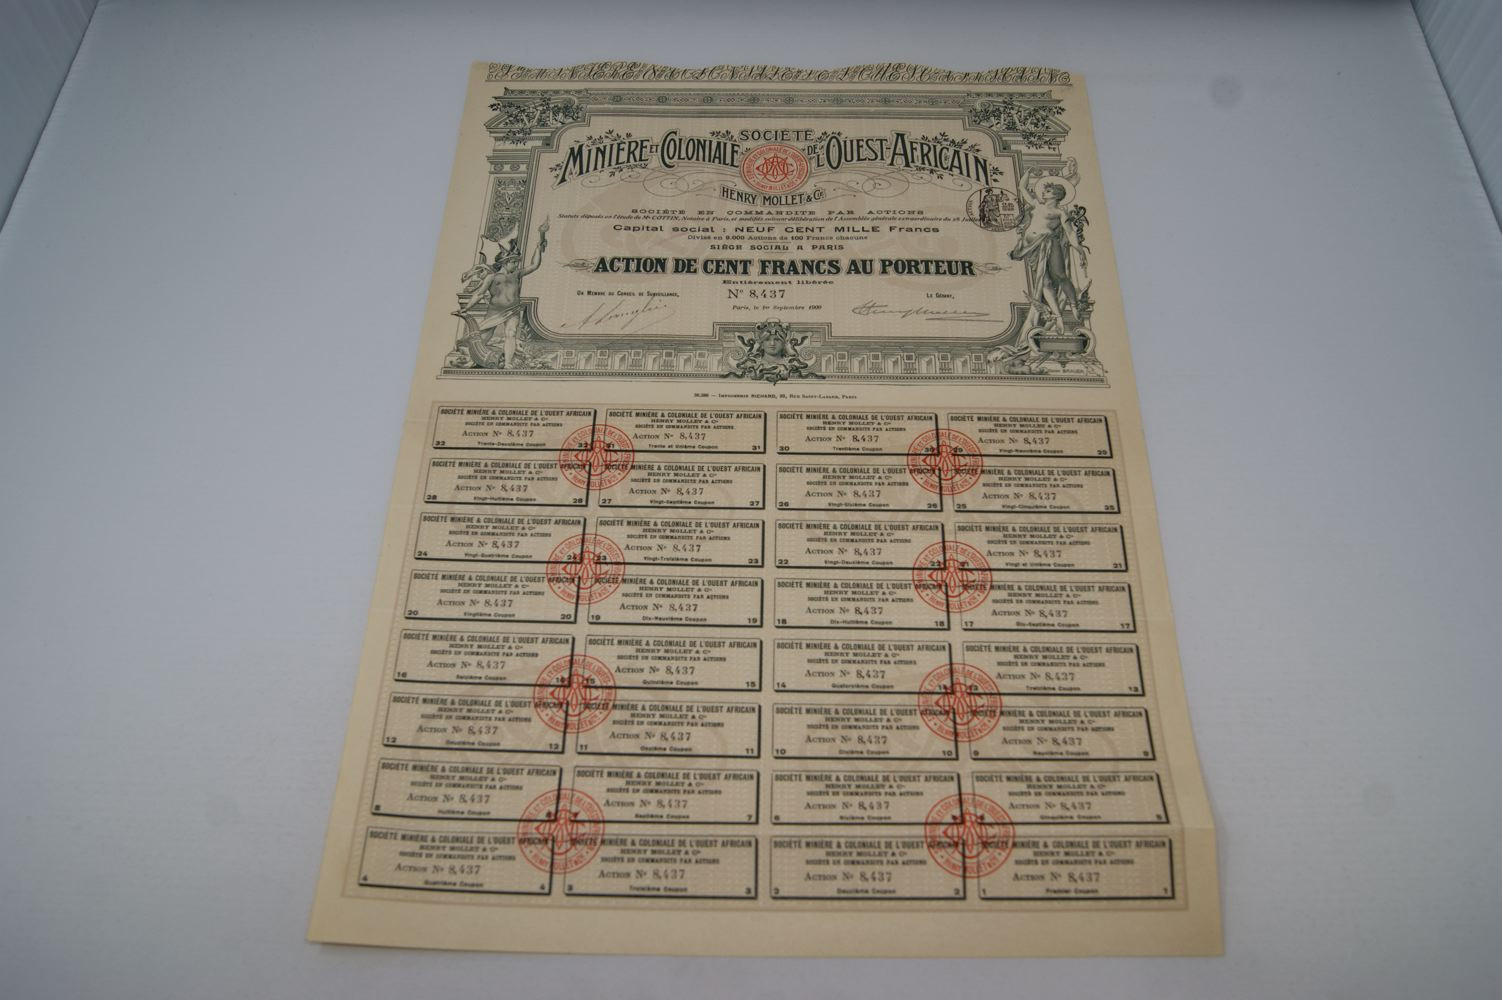 SOCIÉTÉ
MINIÈRE ET COLONIALE DE L'OUEST-AFRICAIN
HENRY MOLLET & Cie
SOCIÉTÉ EN COMMANDITE PAR ACTIONS
Statuts déposés en l'étude de Me COTTIN, Notaire à Paris, et modifiés suivant délibération de l'Assemblée générale extraordinaire du 28 Juillet
Capital social : NEUF CENT MILLE Francs
Divisé en 9.000 Actions de 100 Francs chacune
SIÈGE SOCIAL A PARIS
ACTION DE CENT FRANCS AU PORTEUR
Entièrement libérée
UN MEMBRE DU CONSEIL DE SURVEILLANCE,
N° 8,437
LE GÉRANT,
Paris, le 1er Septembre 1900
IMPRIMERIE RICHARD, RUE SAINT-LAZARE, PARIS
SOCIÉTÉ MINIÈRE & COLONIALE DE L'OUEST AFRICAIN
HENRY MOLLET & Cie
SOCIÉTÉ EN COMMANDITE PAR ACTIONS
ACTION N° 8,437
32 Trente-Deuxième Coupon 32
SOCIÉTÉ MINIÈRE & COLONIALE DE L'OUEST AFRICAIN
HENRY MOLLET & Cie
SOCIÉTÉ EN COMMANDITE PAR ACTIONS
ACTION N° 8,437
31 Trente et Unième Coupon 31
SOCIÉTÉ MINIÈRE & COLONIALE DE L'OUEST AFRICAIN
HENRY MOLLET & Cie
SOCIÉTÉ EN COMMANDITE PAR ACTIONS
ACTION N° 8,437
30 Trentième Coupon 30
SOCIÉTÉ MINIÈRE & COLONIALE DE L'OUEST AFRICAIN
HENRY MOLLET & Cie
SOCIÉTÉ EN COMMANDITE PAR ACTIONS
ACTION N° 8,437
29 Vingt-Neuvième Coupon 29
SOCIÉTÉ MINIÈRE & COLONIALE DE L'OUEST AFRICAIN
HENRY MOLLET & Cie
SOCIÉTÉ EN COMMANDITE PAR ACTIONS
ACTION N° 8,437
28 Vingt-Huitième Coupon 28
SOCIÉTÉ MINIÈRE & COLONIALE DE L'OUEST AFRICAIN
HENRY MOLLET & Cie
SOCIÉTÉ EN COMMANDITE PAR ACTIONS
ACTION N° 8,437
27 Vingt-Septième Coupon 27
SOCIÉTÉ MINIÈRE & COLONIALE DE L'OUEST AFRICAIN
HENRY MOLLET & Cie
SOCIÉTÉ EN COMMANDITE PAR ACTIONS
ACTION N° 8,437
26 Vingt-Sixième Coupon 26
SOCIÉTÉ MINIÈRE & COLONIALE DE L'OUEST AFRICAIN
HENRY MOLLET & Cie
SOCIÉTÉ EN COMMANDITE PAR ACTIONS
ACTION N° 8,437
25 Vingt-Cinquième Coupon 25
SOCIÉTÉ MINIÈRE & COLONIALE DE L'OUEST AFRICAIN
HENRY MOLLET & Cie
SOCIÉTÉ EN COMMANDITE PAR ACTIONS
ACTION N° 8,437
24 Vingt-Quatrième Coupon 24
SOCIÉTÉ MINIÈRE & COLONIALE DE L'OUEST AFRICAIN
HENRY MOLLET & Cie
SOCIÉTÉ EN COMMANDITE PAR ACTIONS
ACTION N° 8,437
23 Vingt-Troisième Coupon 23
SOCIÉTÉ MINIÈRE & COLONIALE DE L'OUEST AFRICAIN
HENRY MOLLET & Cie
SOCIÉTÉ EN COMMANDITE PAR ACTIONS
ACTION N° 8,437
22 Vingt-Deuxième Coupon 22
SOCIÉTÉ MINIÈRE & COLONIALE DE L'OUEST AFRICAIN
HENRY MOLLET & Cie
SOCIÉTÉ EN COMMANDITE PAR ACTIONS
ACTION N° 8,437
21 Vingt et Unième Coupon 21
SOCIÉTÉ MINIÈRE & COLONIALE DE L'OUEST AFRICAIN
HENRY MOLLET & Cie
SOCIÉTÉ EN COMMANDITE PAR ACTIONS
ACTION N° 8,437
20 Vingtième Coupon 20
SOCIÉTÉ MINIÈRE & COLONIALE DE L'OUEST AFRICAIN
HENRY MOLLET & Cie
SOCIÉTÉ EN COMMANDITE PAR ACTIONS
ACTION N° 8,437
19 Dix-Neuvième Coupon 19
SOCIÉTÉ MINIÈRE & COLONIALE DE L'OUEST AFRICAIN
HENRY MOLLET & Cie
SOCIÉTÉ EN COMMANDITE PAR ACTIONS
ACTION N° 8,437
18 Dix-Huitième Coupon 18
SOCIÉTÉ MINIÈRE & COLONIALE DE L'OUEST AFRICAIN
HENRY MOLLET & Cie
SOCIÉTÉ EN COMMANDITE PAR ACTIONS
ACTION N° 8,437
17 Dix-Septième Coupon 17
SOCIÉTÉ MINIÈRE & COLONIALE DE L'OUEST AFRICAIN
HENRY MOLLET & Cie
SOCIÉTÉ EN COMMANDITE PAR ACTIONS
ACTION N° 8,437
16 Seizième Coupon 16
SOCIÉTÉ MINIÈRE & COLONIALE DE L'OUEST AFRICAIN
HENRY MOLLET & Cie
SOCIÉTÉ EN COMMANDITE PAR ACTIONS
ACTION N° 8,437
15 Quinzième Coupon 15
SOCIÉTÉ MINIÈRE & COLONIALE DE L'OUEST AFRICAIN
HENRY MOLLET & Cie
SOCIÉTÉ EN COMMANDITE PAR ACTIONS
ACTION N° 8,437
14 Quatorzième Coupon 14
SOCIÉTÉ MINIÈRE & COLONIALE DE L'OUEST AFRICAIN
HENRY MOLLET & Cie
SOCIÉTÉ EN COMMANDITE PAR ACTIONS
ACTION N° 8,437
13 Treizième Coupon 13
SOCIÉTÉ MINIÈRE & COLONIALE DE L'OUEST AFRICAIN
HENRY MOLLET & Cie
SOCIÉTÉ EN COMMANDITE PAR ACTIONS
ACTION N° 8,437
12 Douzième Coupon 12
SOCIÉTÉ MINIÈRE & COLONIALE DE L'OUEST AFRICAIN
HENRY MOLLET & Cie
SOCIÉTÉ EN COMMANDITE PAR ACTIONS
ACTION N° 8,437
11 Onzième Coupon 11
SOCIÉTÉ MINIÈRE & COLONIALE DE L'OUEST AFRICAIN
HENRY MOLLET & Cie
SOCIÉTÉ EN COMMANDITE PAR ACTIONS
ACTION N° 8,437
10 Dixième Coupon 10
SOCIÉTÉ MINIÈRE & COLONIALE DE L'OUEST AFRICAIN
HENRY MOLLET & Cie
SOCIÉTÉ EN COMMANDITE PAR ACTIONS
ACTION N° 8,437
9 Neuvième Coupon 9
SOCIÉTÉ MINIÈRE & COLONIALE DE L'OUEST AFRICAIN
HENRY MOLLET & Cie
SOCIÉTÉ EN COMMANDITE PAR ACTIONS
ACTION N° 8,437
8 Huitième Coupon 8
SOCIÉTÉ MINIÈRE & COLONIALE DE L'OUEST AFRICAIN
HENRY MOLLET & Cie
SOCIÉTÉ EN COMMANDITE PAR ACTIONS
ACTION N° 8,437
7 Septième Coupon 7
SOCIÉTÉ MINIÈRE & COLONIALE DE L'OUEST AFRICAIN
HENRY MOLLET & Cie
SOCIÉTÉ EN COMMANDITE PAR ACTIONS
ACTION N° 8,437
6 Sixième Coupon 6
SOCIÉTÉ MINIÈRE & COLONIALE DE L'OUEST AFRICAIN
HENRY MOLLET & Cie
SOCIÉTÉ EN COMMANDITE PAR ACTIONS
ACTION N° 8,437
5 Cinquième Coupon 5
SOCIÉTÉ MINIÈRE & COLONIALE DE L'OUEST AFRICAIN
HENRY MOLLET & Cie
SOCIÉTÉ EN COMMANDITE PAR ACTIONS
ACTION N° 8,437
4 Quatrième Coupon 4
SOCIÉTÉ MINIÈRE & COLONIALE DE L'OUEST AFRICAIN
HENRY MOLLET & Cie
SOCIÉTÉ EN COMMANDITE PAR ACTIONS
ACTION N° 8,437
3 Troisième Coupon 3
SOCIÉTÉ MINIÈRE & COLONIALE DE L'OUEST AFRICAIN
HENRY MOLLET & Cie
SOCIÉTÉ EN COMMANDITE PAR ACTIONS
ACTION N° 8,437
2 Deuxième Coupon 2
SOCIÉTÉ MINIÈRE & COLONIALE DE L'OUEST AFRICAIN
HENRY MOLLET & Cie
SOCIÉTÉ EN COMMANDITE PAR ACTIONS
ACTION N° 8,437
1 Premier Coupon 1